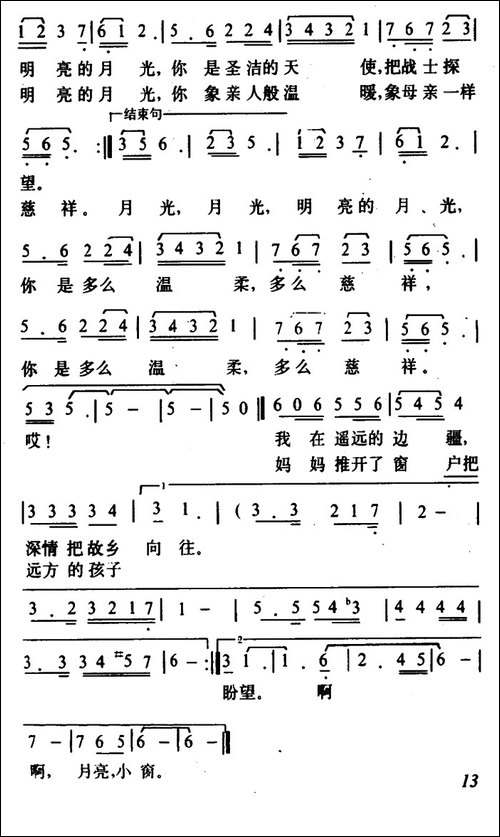 1 2 3 7 | 6 1 2. | 5. 6 2 2 4 | 3 4 3 2 1 | 7 6 7 2 3 |
明 亮的月 光,你 是圣洁的天 使,把战士探
明 亮的月 光,你 象亲人般温 暖,象母亲一样
结束句
5 6 5. :‖ 3 5 6. | 2 3 5. | 1 2 3 7 | 6 1 2. |
望。
慈 祥。 月 光, 月 光, 明 亮的 月、光,
5. 6 2 2 4 | 3 4 3 2 1 | 7 6 7 2 3 | 5 6 5. |
你 是 多么 温 柔, 多么 慈 祥,
5. 6 2 2 4 | 3 4 3 2 1 | 7 6 7 2 3 | 5 6 5. |
你 是 多么 温 柔, 多么 慈 祥。
5 3 5. | 5 - | 5 - | 5 0 ‖ 6 0 6 5 5 6 | 5 4 5 4
哎! 我 在 遥远的 边 疆,
妈 妈 推开了 窗 户把
1
| 3 3 3 3 4 | 3 1. | ( 3. 3 2 1 7 | 2 - |
深情 把故乡 向 往。
远方 的 孩子
3. 2 3 2 1 7 | 1 - | 5. 5 5 4 b3 | 4 4 4 4 |
2
3. 3 3 4 #5 7 | 6 - :‖ 3 1. | 1. 6 | 2. 4 5 | 6 - |
盼望。 啊
7 - | 7 6 5 | 6 - | 6 - ‖
啊, 月亮,小 窗。
13